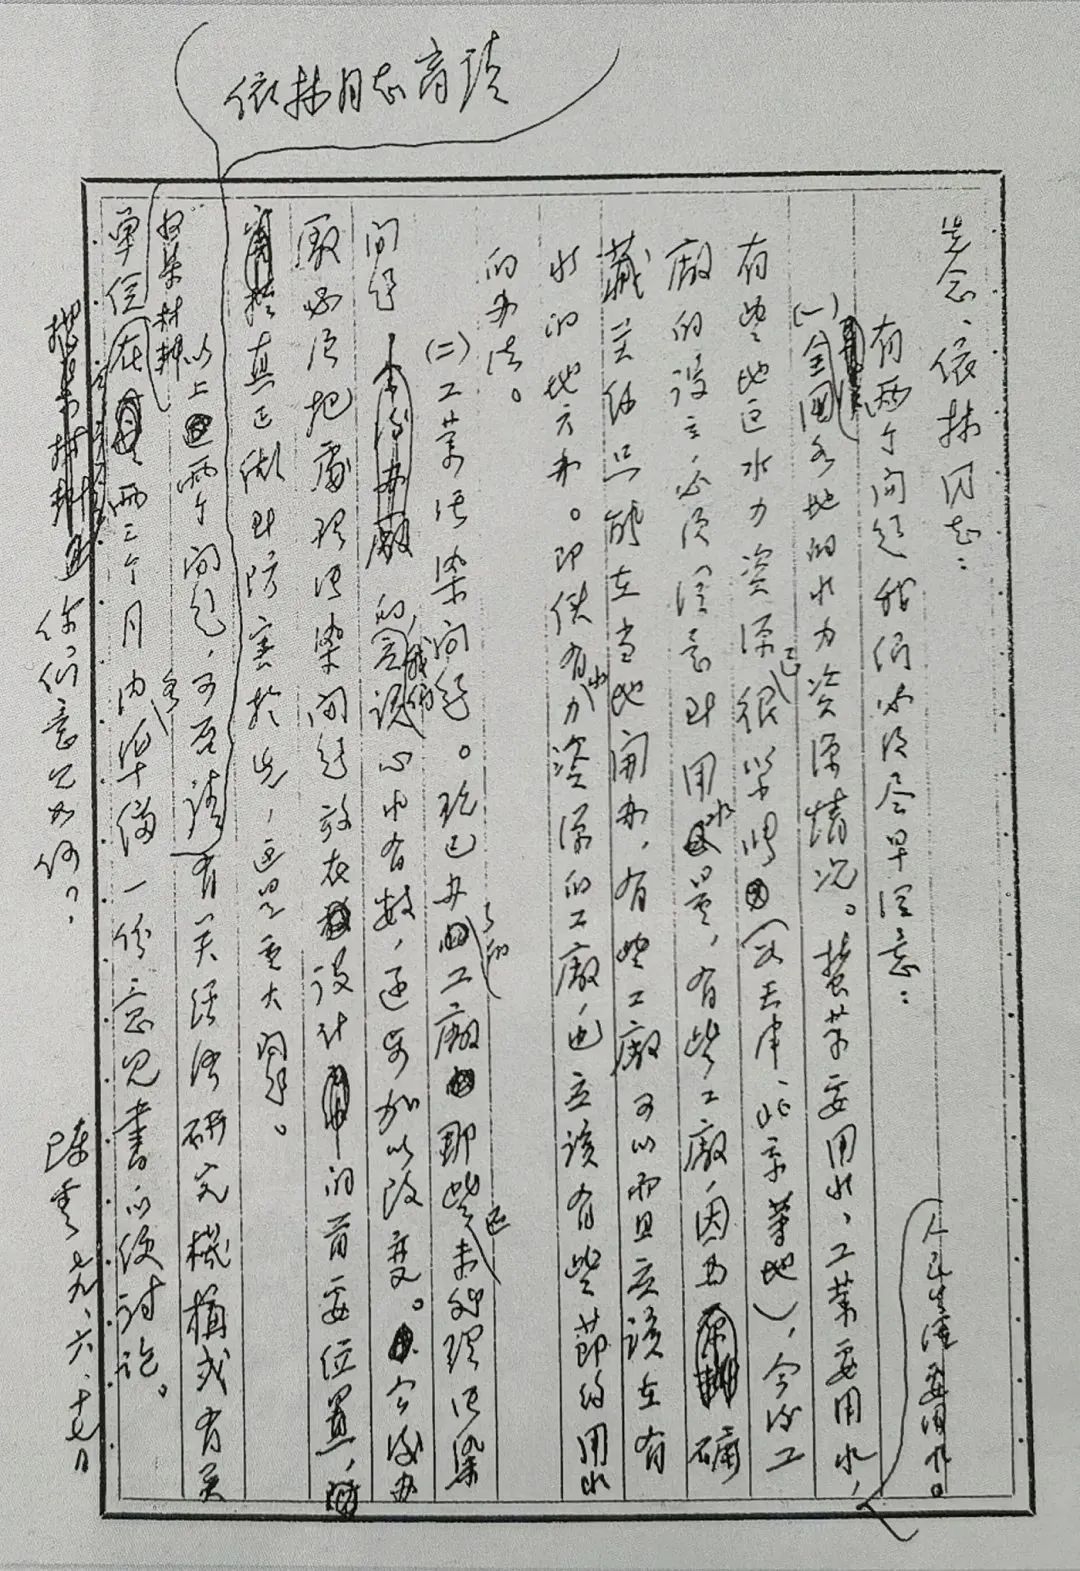 先念、依林同志：
有两个问题我们必须尽早注意：
(一)全国各地的水力资源情况。农业要用水，工业要用水，
人民生活要用水。
有些地区水力资源已很紧张(如天津、北京等地)，今后工
廠的设立必须注意到用水量，有些工廠，因为礦
藏关系只能在当地開办，有些工廠可以而且应该在有
水的地方办。即使有水力资源的工廠，也应该有些節约用水
的办法。
(二)工业污染问题。现已办了的工廠那些还未处理污染
问题的，我们心中有数，逐步加以改变。今后办
廠必须把處理污染问题放在设计的首要位置，
真正做到防害於先，这是重大问题。
以上两个问题，可否请依林同志商请有关经济研究機構或有关
单位在两三个月内各準備一份意见書以便讨论。
收集材料
你们意见如何？
陈雲 七九、六、十七日